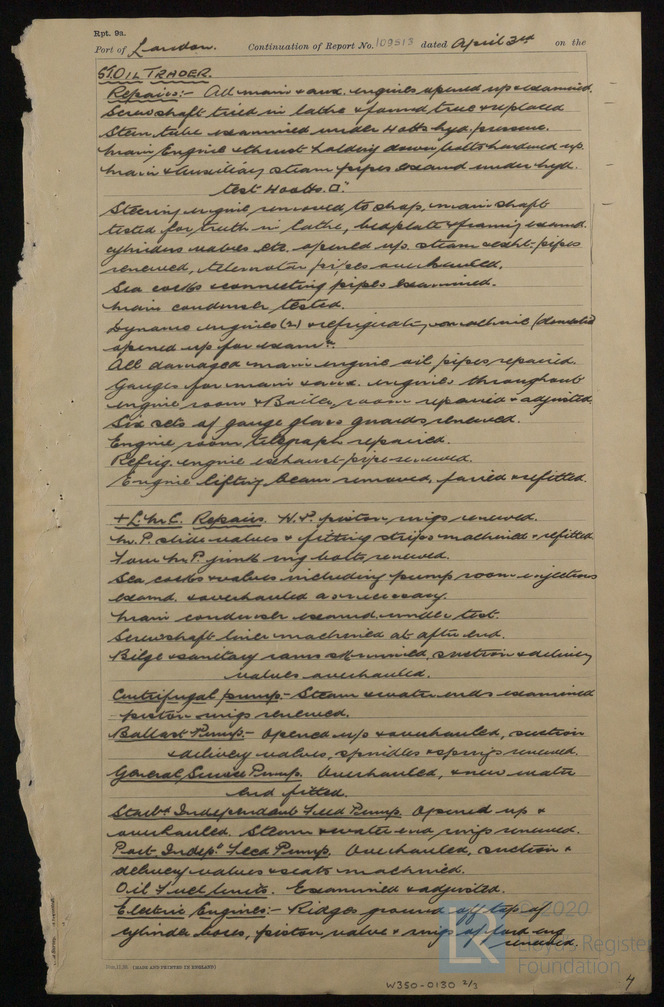 Rpt. 9a.
Port of London. Continuation of Report No. 109513 dated April 3rd on the
S/T. OIL TRADER.
Repairs:- All main & aux. engines opened up & examined.
Screwshaft tried in lathe & found true & replaced
Stern tube examined under 40 lbs hyd. pressure.
Main Engine & thrust holding down bolts hardened up.
Main & Auxiliary steam pipes examd under hyd.
test 400 lbs. □".
Steering engine removed to shop, main shaft
tested for truth in lathe, bedplate & framing examd.
cylinders valves etc. opened up. steam & exht. pipes
renewed, telemotor pipes overhauled.
Sea cocks & connecting pipes examined.
Main condenser tested.
Dynamo engines (2) & refrigeratg machine (domestic)
opened up for examn.
All damaged main engine oil pipes repaired.
Gauges for main & aux. engines throughout
engine room & Boiler room repaired & adjusted.
Six sets of gauge glass guards renewed.
Engine room telegraph repaired.
Refrig. engine exhaust pipe renewed.
Engine lifting beam removed, faired & refitted.
+ L.M.C. Repairs. H.P. piston rings renewed.
M.P. slide valves & fitting strips machined & refitted
Four M.P. junk ring bolts renewed.
Sea cocks & valves including pump room injections
examd. & overhauled as necessary.
Main condenser examd. under test.
Screwshaft liner machined at after end.
Bilge & sanitary rams skimmed, suction & delivery
valves overhauled.
Centrifugal pump - Steam & water ends examined
piston rings renewed.
Ballast Pump. - Opened up & overhauled, suction
& delivery valves, spindles & springs renewed.
General Service Pump. Overhauled, & new water
end fitted.
Starbd Independant Feed Pump. Opened up &
overhauled. Steam & water end rings renewed.
Port Indept Feed Pump. Overhauled, suction &
delivery valves & seats machined.
Oil Fuel Units. Examined & adjusted.
Electric Engines:- Ridges ground off top of
cylinder bores, piston, valve & rings of fwd eng
renewed.
(MADE AND PRINTED IN ENGLAND)
W350-0130 2/3
4
© 2020
LR
Lloyd's Register
Foundation